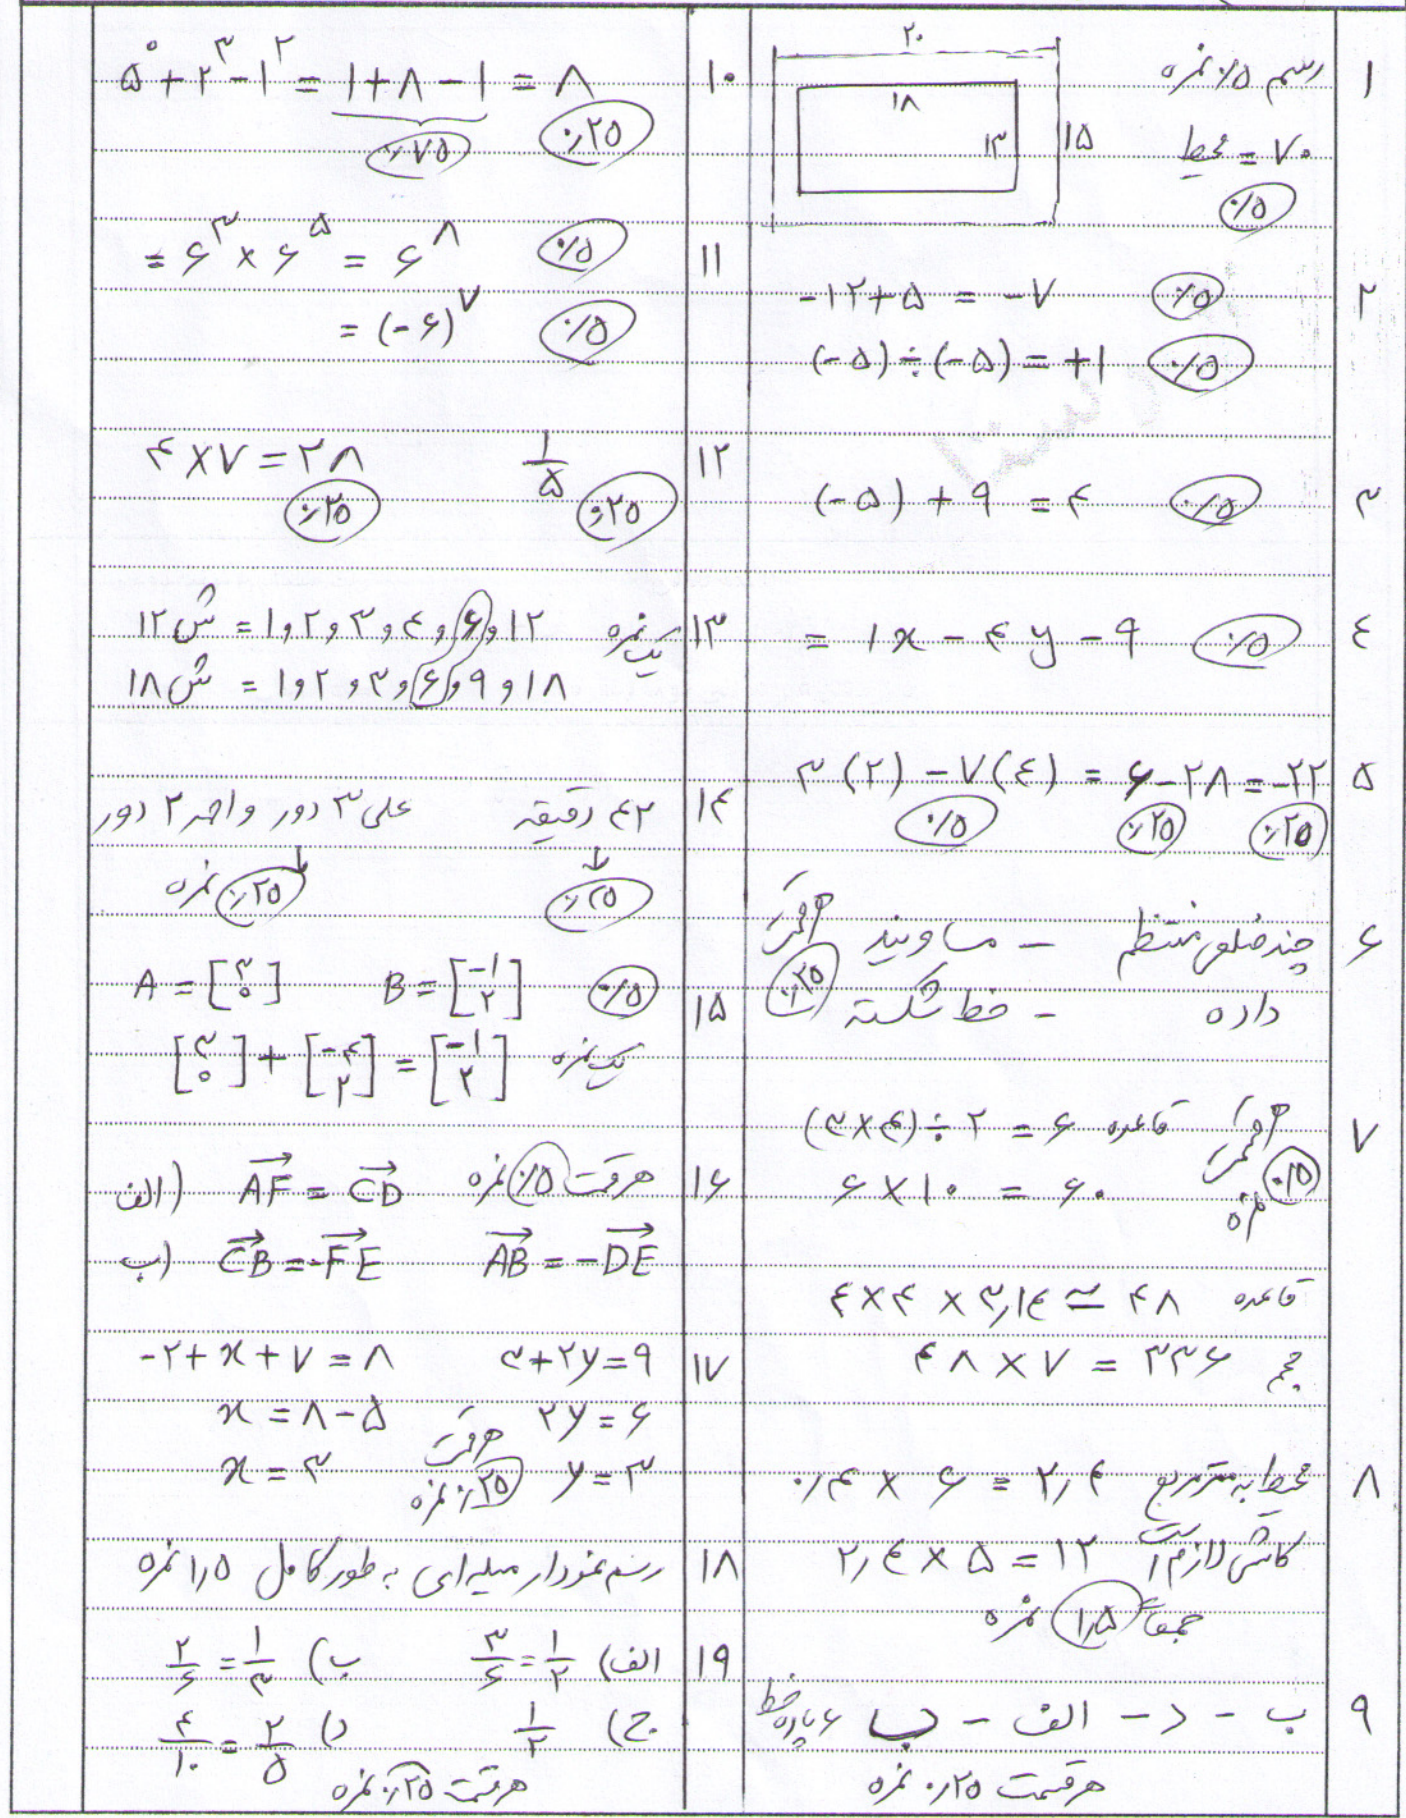 ۱ رسم ۰٫۵ نمره
۲۰
۱۸
۱۳
۱۵
محیط = ۷۰
۰٫۵
۲ -۱۲+۵ = -۷ ۰٫۵
(-۵)÷(-۵) = +۱ ۰٫۵
۳ (-۵) + ۹ = ۴ ۰٫۵
۴ = ۱x - ۴y - ۹ ۰٫۵
۵ ۳(۲) - ۷(۴) = ۶-۲۸ = -۲۲
۰٫۵ ۰٫۲۵ ۰٫۲۵
۶ چند ضلعی منتظم - مساویند هر قسمت
داده - خط شکسته ۰٫۲۵
۷ قاعده (۳×۴)÷۲ = ۶ هر قسمت
۶×۱۰ = ۶۰ ۰٫۵ نمره
قاعده ۴×۴×۳٫۱۴ ≃ ۴۸
حجم ۴۸×۷ = ۳۳۶
۸ محیط به متر مربع ۰٫۴ × ۶ = ۲٫۴
کاشی لازم است ۲٫۴×۵ = ۱۲
جمعاً ۱٫۵ نمره
۹ ب - د - الف - ب ۶ پاره خط
هر قسمت ۰٫۲۵ نمره
۱۰ ۵^۰ + ۲^۳ - ۱^۲ = ۱+۸-۱ = ۸
۰٫۷۵ ۰٫۲۵
۱۱ = ۶^۳ × ۶^۵ = ۶^۸ ۰٫۵
= (-۶)^۷ ۰٫۵
۱۲ ۴×۷=۲۸ ۱/۵
۰٫۲۵ ۰٫۲۵
۱۳ ش۱۲ = ۱,۲,۳,۴,۶,۱۲ یک نمره
ش۱۸ = ۱,۲,۳,۶,۹,۱۸
۱۴ ۴۲ دقیقه علی ۳ دور و احمد ۲ دور
۰٫۲۵ ۰٫۲۵ نمره
۱۵ A = [۳ ۰] B = [-۱ ۲] ۰٫۵
[۳ ۰] + [-۴ ۲] = [-۱ ۲] یک نمره
۱۶ الف) AF = CD هر قسمت ۰٫۵ نمره
ب) CB = -FE AB = -DE
۱۷ -۲+x+۷=۸ ۳+۲y=۹
x = ۸-۵ ۲y=۶
x = ۳ y=۳ هر قسمت ۰٫۲۵ نمره
۱۸ رسم نمودار میله‌ای به طور کامل ۱٫۵ نمره
۱۹ الف) ۳/۶ = ۱/۲ ب) ۲/۶ = ۱/۳
ج) ۱/۲ د) ۴/۱۰ = ۲/۵
هر قسمت ۰٫۲۵ نمره